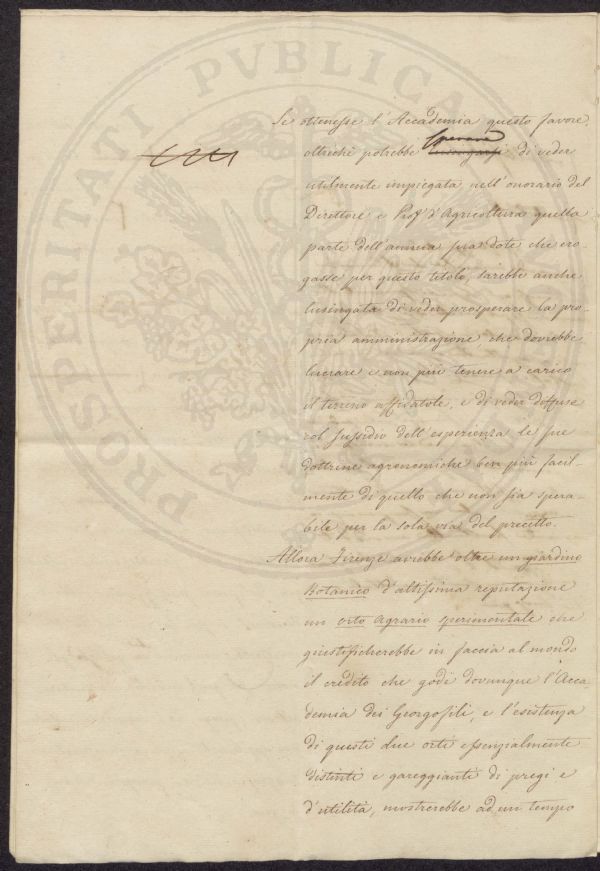 PROSPERITATI PVBLICAE
Se ottenesse l'Accademia questo favore,
sperare
oltrechè potrebbe lusingarsi di veder
utilmente impiegata nell'onorario del
Direttore e Prof d'Agricoltura quella
parte dell'annua sua dote che ero-
gasse per questo titolo, sarebbe anche
lusingata di veder prosperare la pro-
pria amministrazione, che dovrebbe
lucrare e non più tenere a carico
il terreno affidatole, e di veder diffuse
col sussidio dell'esperienza le sue
dottrine agronomiche ben più facil-
mente di quello che non sia spera-
bile per la sola via del precetto.
Allora Firenze avrebbe oltre un giardino
Botanico d'altissima reputazione
un orto Agrario sperimentale che
giustificherebbe in faccia al mondo
il credito che godi dovunque l'Acca
demia dei Georgofili, e l'esistenza
di questi due orti essenzialmente
distinti e gareggianti di pregi e
d'utilità, mostrerebbe ad un tempo